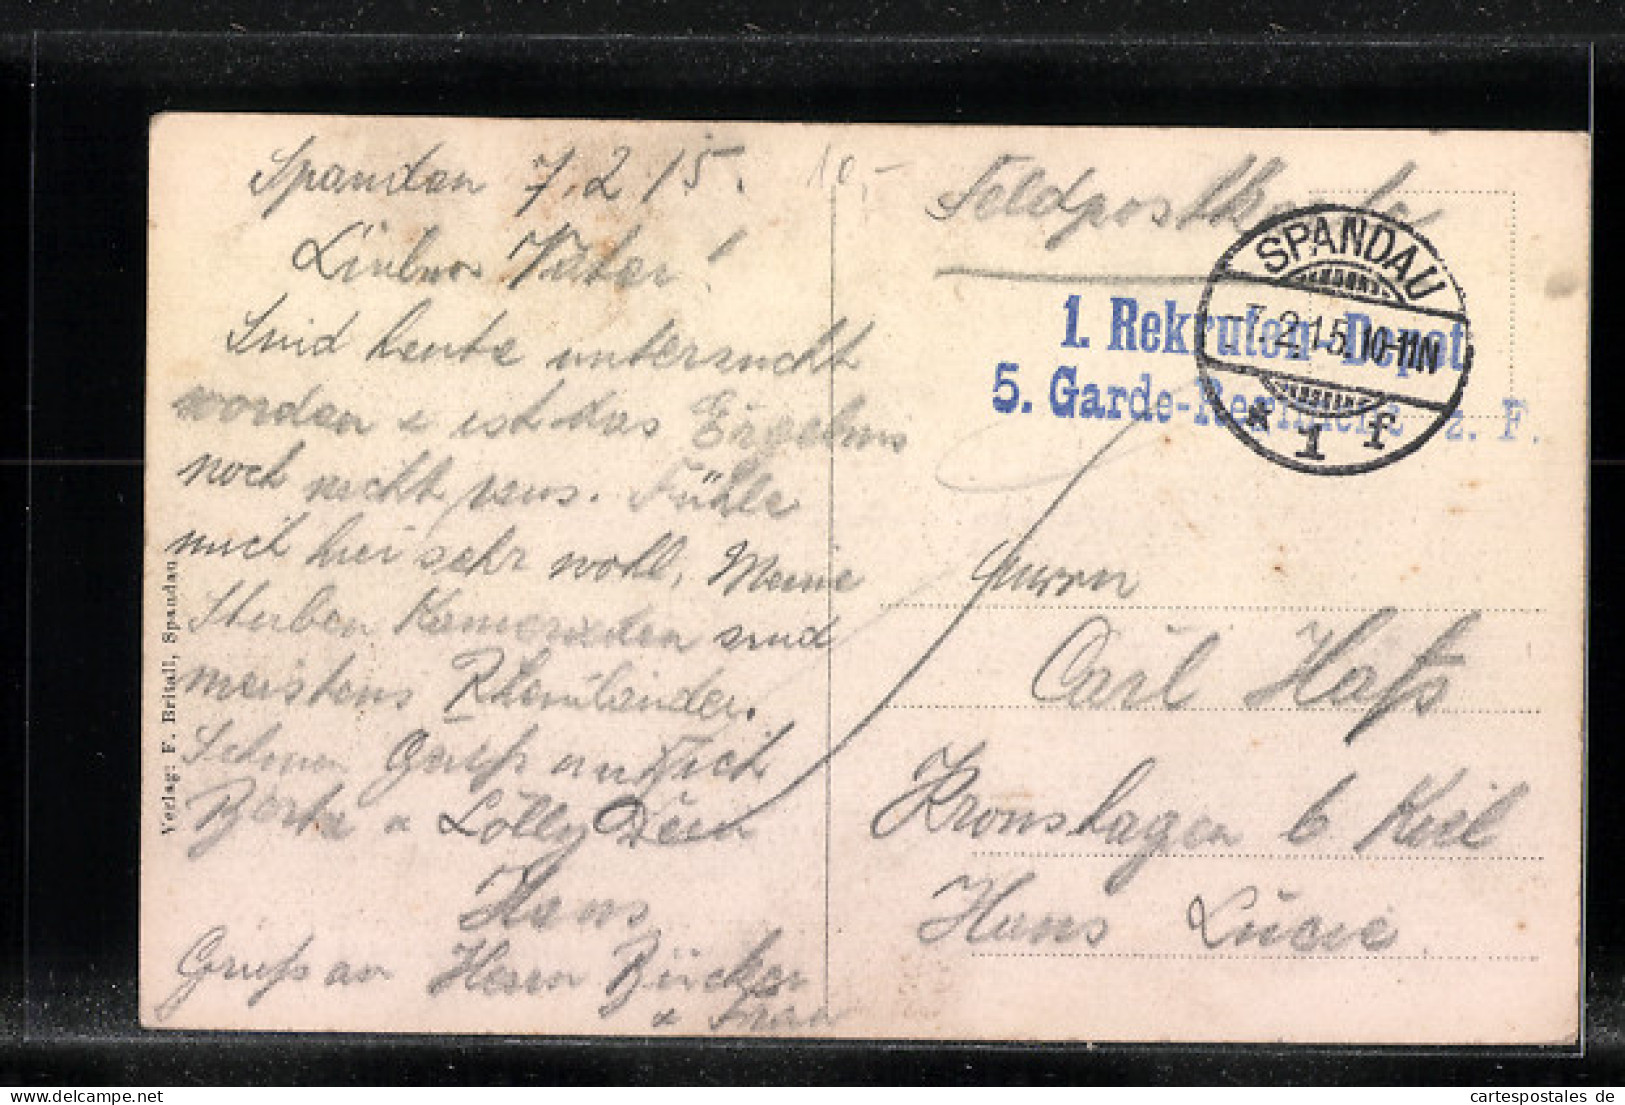 Spandau 7.2.15.
Lieber Vater!
Sind heute untersucht
worden & ist das Ergebnis
noch nicht raus. Fühle
mich hier sehr wohl. Meine
Stuben Kameraden sind
meistens Rheinländer.
Schönen Gruß an Dich
Berta & Lolly Dein
Hans
Gruß an Herrn Bücker
& Frau
Verlag: F. Britall, Spandau
10,-
Feldpostkarte
SPANDAU
-7.2.15.10-11N
* 1 f
1. Rekruten-Depot
5. Garde-Regiment z. F.
Herrn
Carl Haß
Kronshagen b Kiel
Haus Lucie
cartespostales de